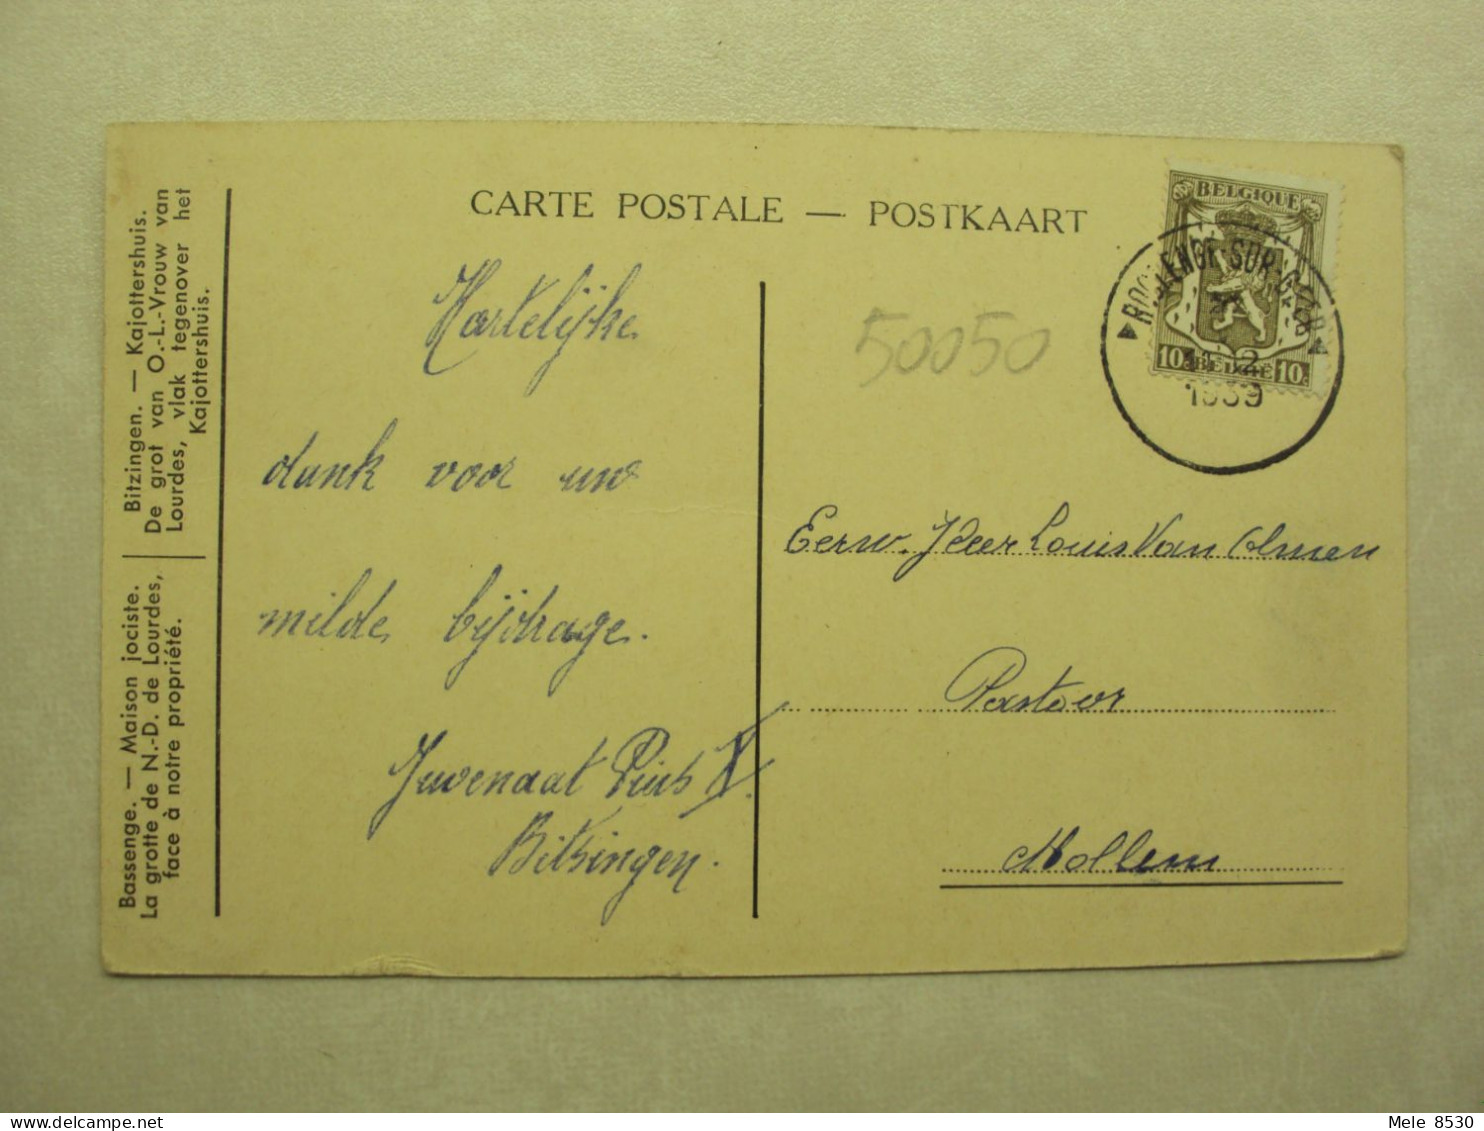 CARTE POSTALE — POSTKAART
Bitzingen. — Kajottershuis.
De grot van O.-L.-Vrouw van
Lourdes, vlak tegenover het
Kajottershuis.
Bassenge. — Maison jociste.
La grotte de N.-D. de Lourdes,
face à notre propriété.
Hartelijke
dank voor uw
milde bijdrage.
Juvenaat Pius X.
Bitsingen.
50050
BELGIQUE
10c BELGIË 10c
ROCLENGE-SUR-GEER
2
1939
Eerw. Heer Louis Van Olmen
Pastoor
Mollem
Mele 8530